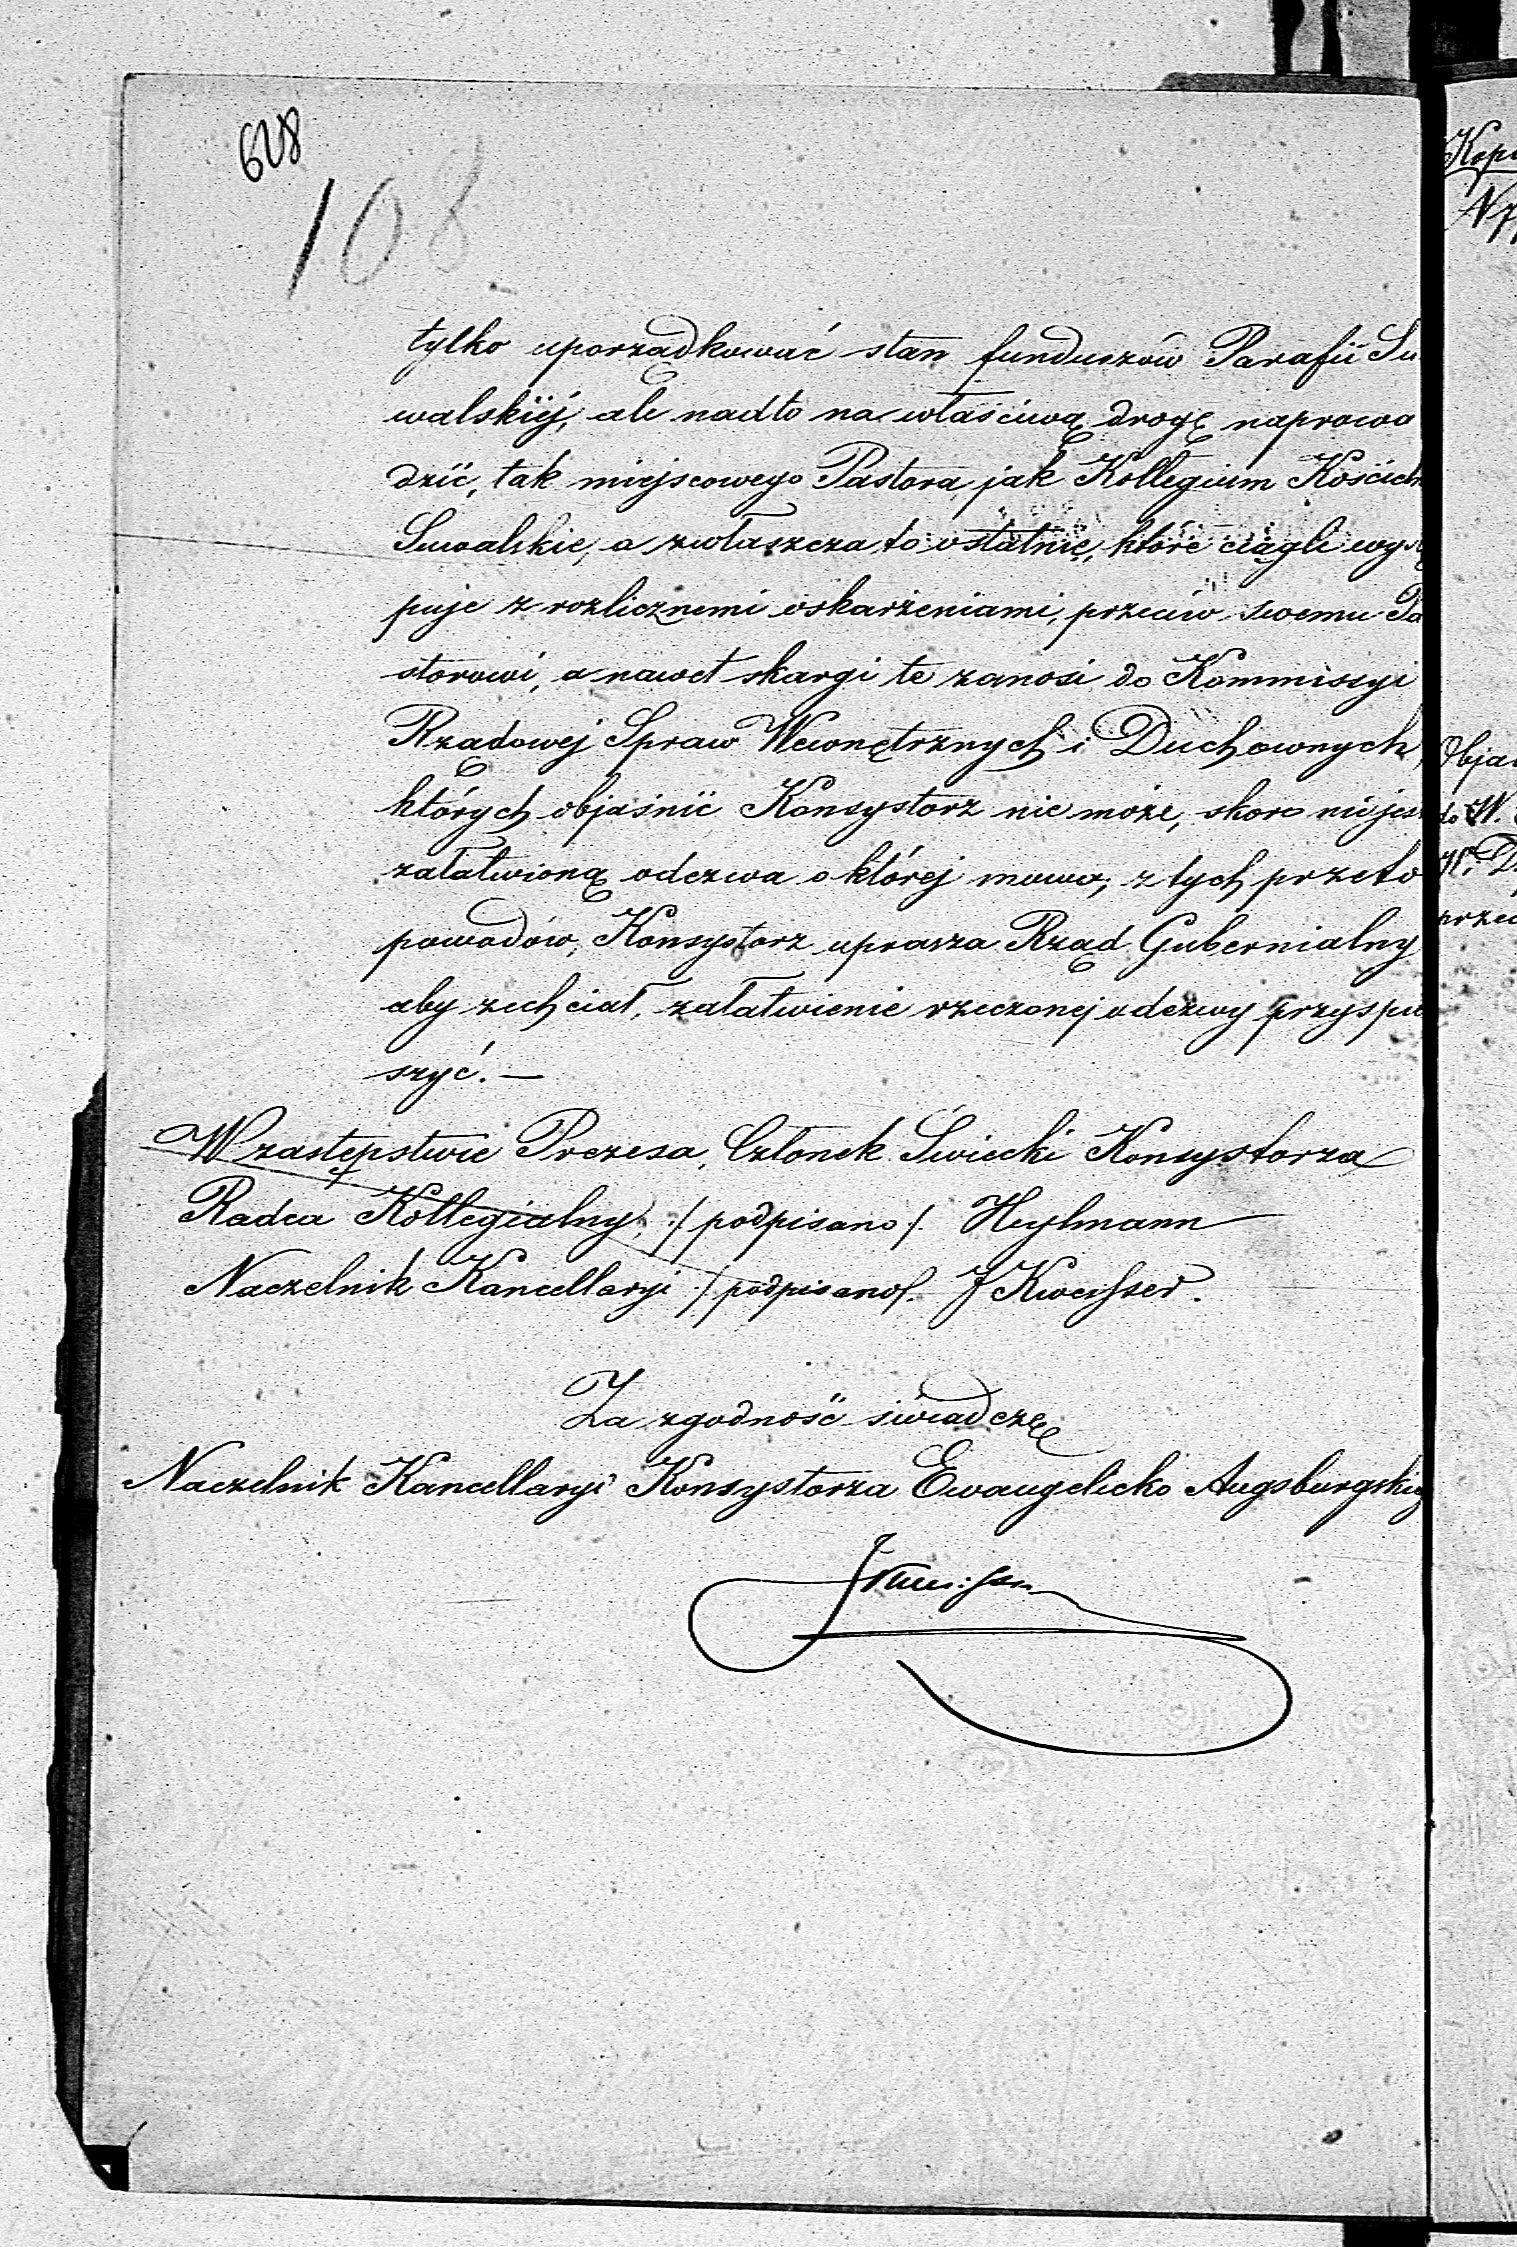 608
108
tylko uporządkować stan funduszów Parafii Su
walskiéj, ale nadto na właściwą drogę naprowa
dzić, tak miejscowego Pastora, jak Kollegium Kościeln
Suwalskie, a zwłaszcza to ostatnie, które ciągle wystę
puje z rozlicznemi oskarżeniami, przeciw swemu Pa
storowi, a nawet skargi te zanosi do Kommissyi
Rządowej Spraw Wewnętrznych i Duchownych,
których objaśnić Konsystorz nie może, skoro nie jest
załatwioną odezwa o której mowa; z tych przeto
powodów, Konsystorz uprasza Rząd Gubernialny
aby zechciał, załatwienie rzeczonej odezwy przyspie
szyć. —
W zastępstwie Prezesa, Członek Świecki Konsystorza
Radca Kollegialny, /podpisano/. Heylmann
Naczelnik Kancellaryi /podpisano/. J Kweisser.
Za zgodność świadczę
Naczelnik Kancellaryi Konsystorza Ewangelicko Augsburgskiego
Objaś
do W.
przed